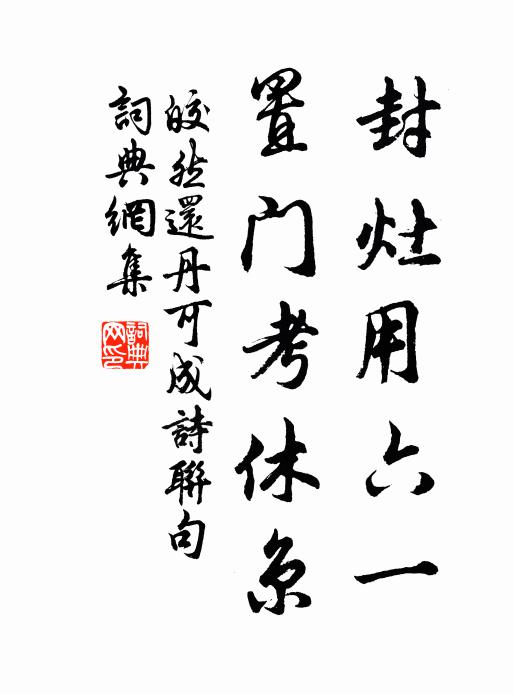 封灶用六一
置门考休京
皎然還丹可成詩聯句
詞典網集
詞典网印